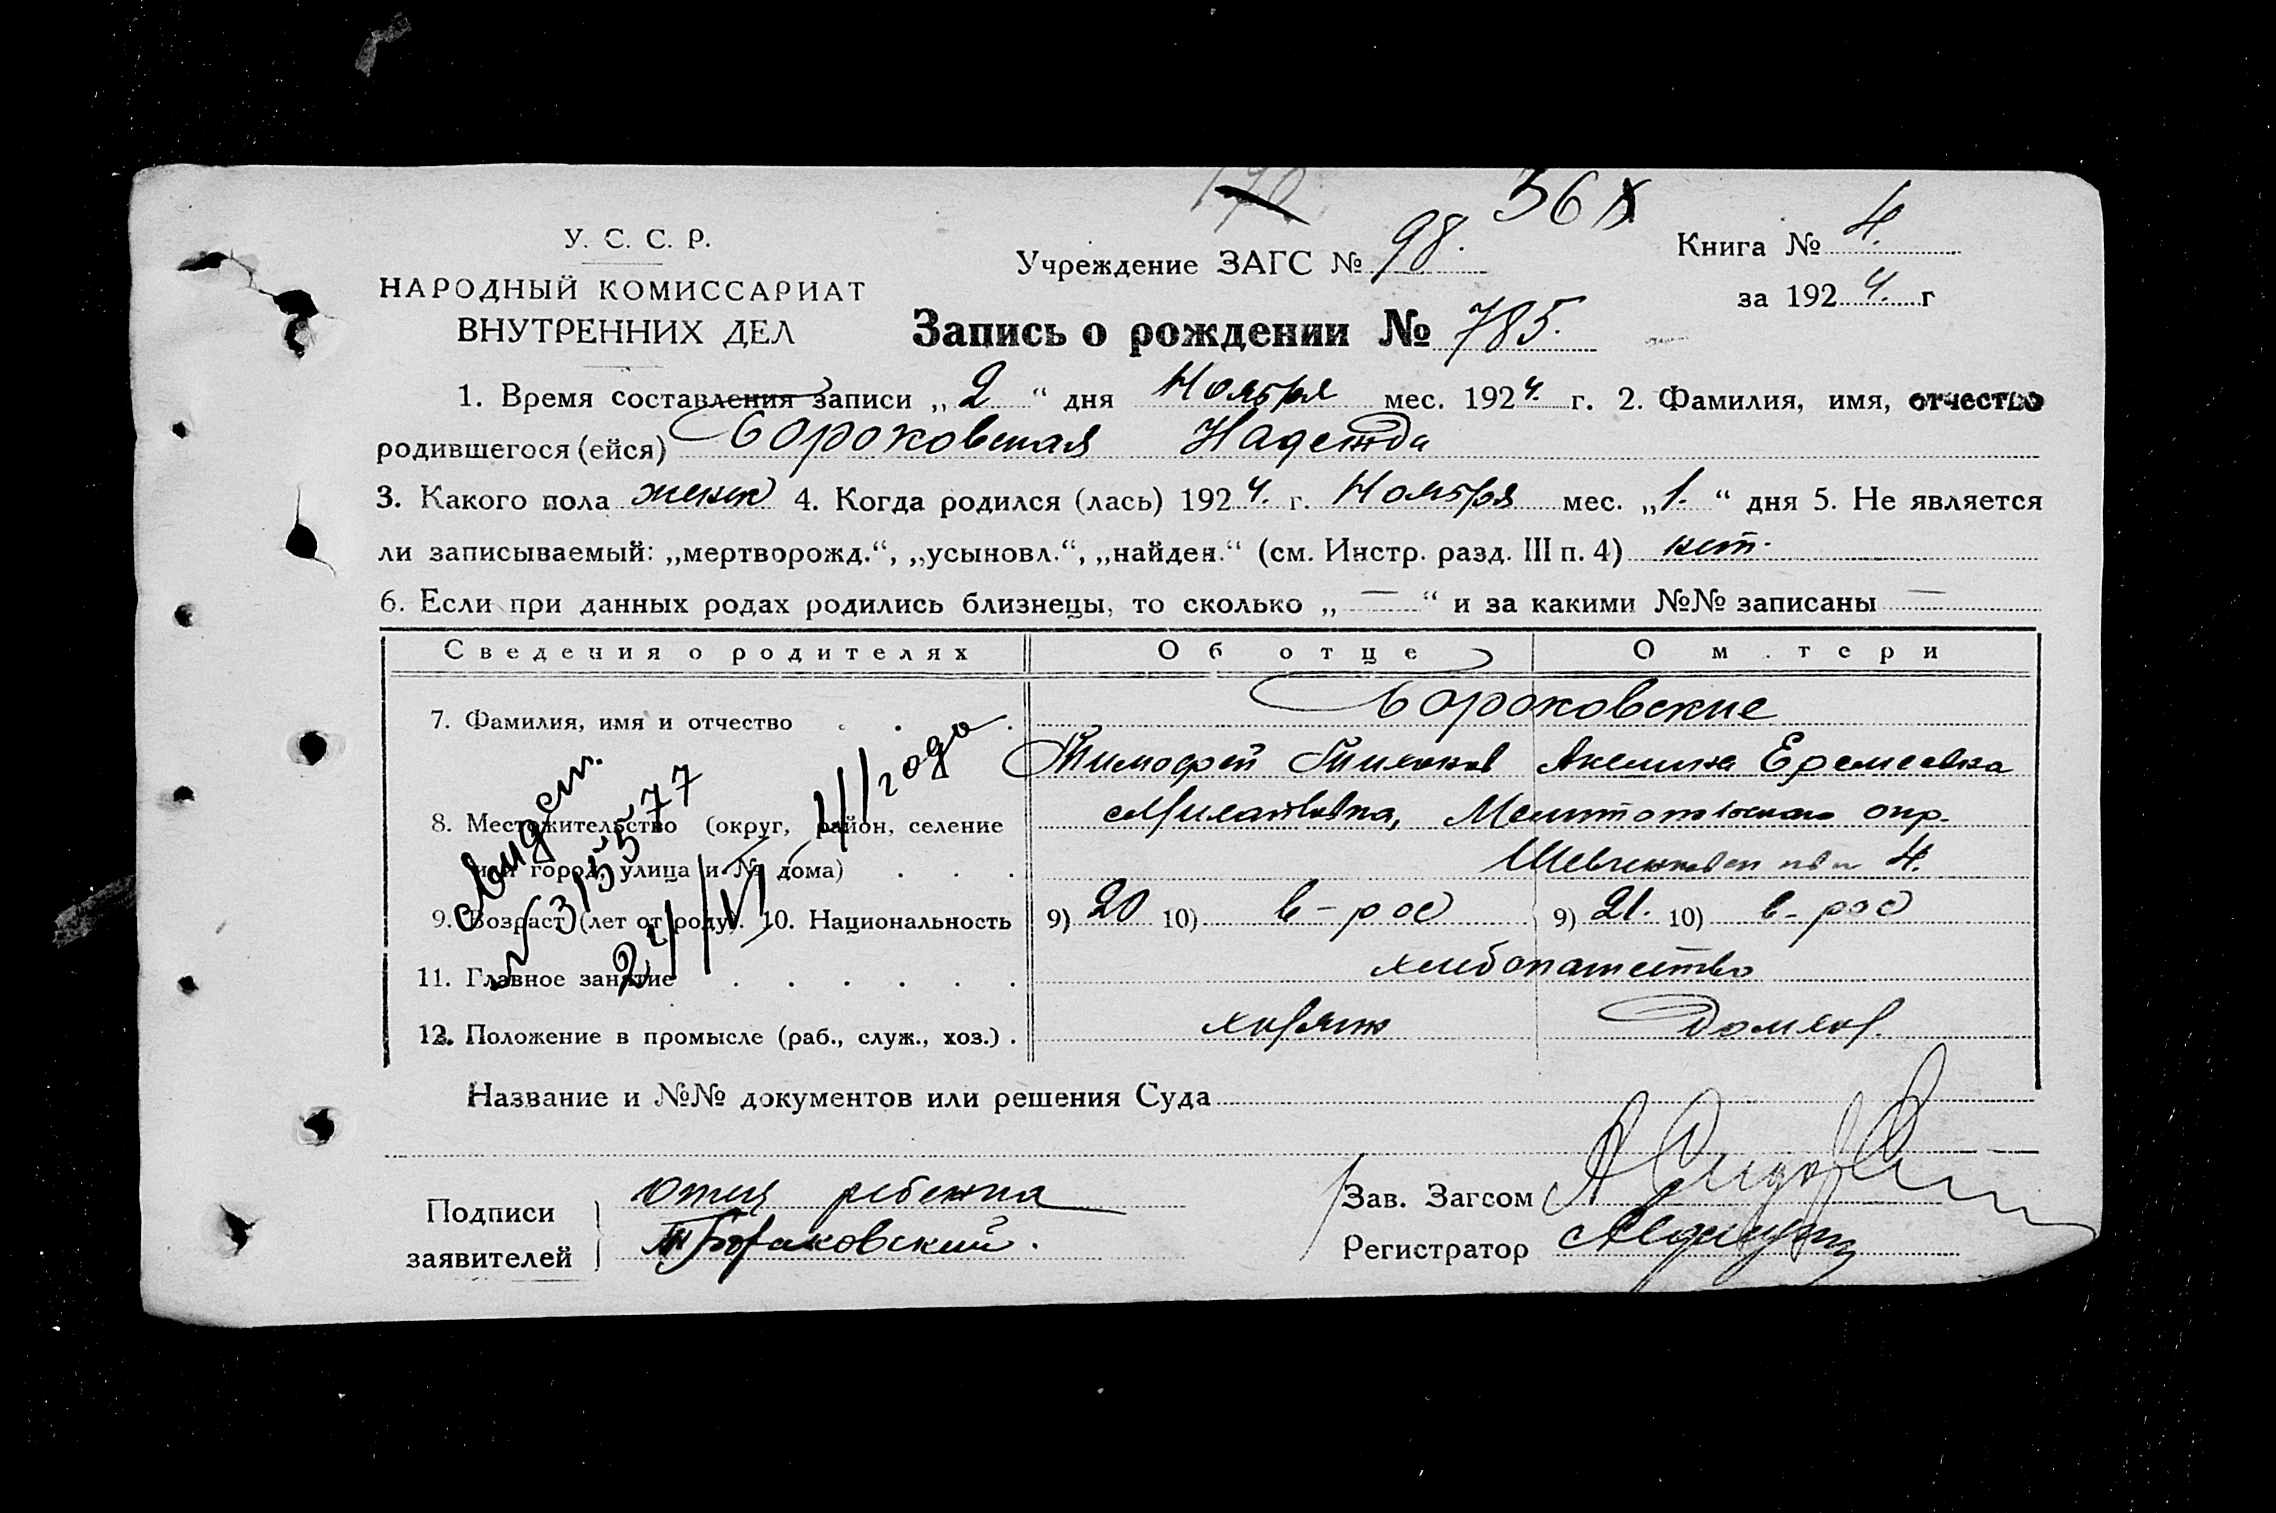 170 56
У. С. С. Р.
Учреждение ЗАГС № 98.
Книга № 4.
НАРОДНЫЙ КОМИССАРИАТ
за 1924. г
ВНУТРЕННИХ ДЕЛ
Запись о рождении № 785.
1. Время составления записи „2“ дня Ноября мес. 1924. г. 2. Фамилия, имя, отчество
родившегося (ейся) Бороковская Надежда
3. Какого пола женск 4. Когда родился (лась) 1924. г. Ноября мес. „1.“ дня 5. Не является
ли записываемый: „мертворожд.“, „усыновл.“, „найден.“ (см. Инстр. разд. III п. 4) нет.
6. Если при данных родах родились близнецы, то сколько „—“ и за какими №№ записаны —
Сведения о родителях Об отце О м.тери
Бороковские
7. Фамилия, имя и отчество
Тимофей Акелина Еремеевна
8. Местожительство (округ, район, селение Мелитопольского окр.
или город, улица и № дома) 4.
9. Возраст (лет от роду). 10. Национальность 9) 20 10) в-рос 9) 21. 10) в-рос
11. Главное занятие хлебопашество
12. Положение в промысле (раб., служ., хоз.) хозяин Домхоз.
№ 315577
года
Название и №№ документов или решения Суда
Подписи заявителей
Отец ребенка
Т Бораковский.
Зав. Загсом
Регистратор